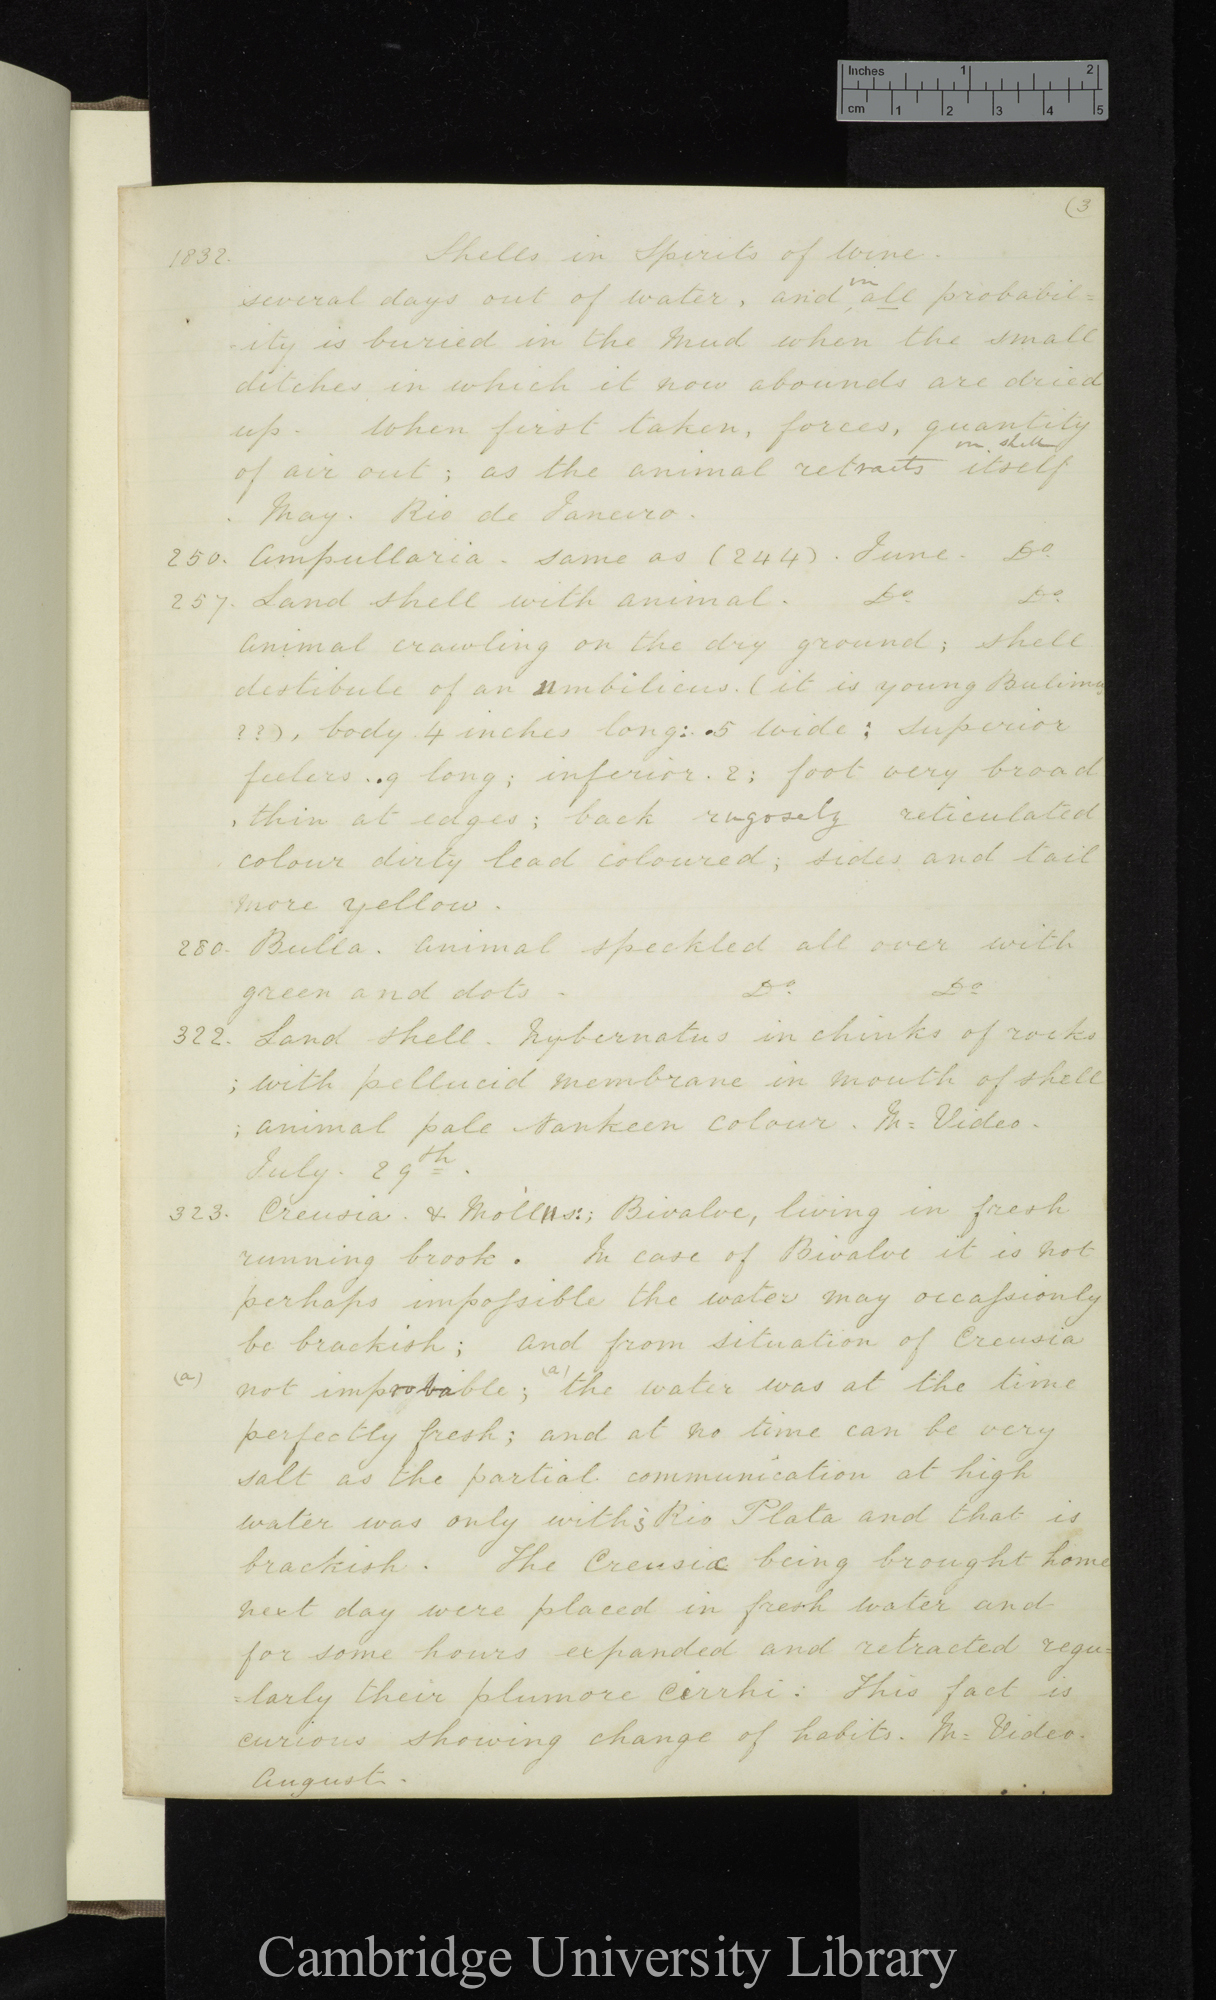 Inches 1 2
cm 1 2 3 4 5
(3
1832. Shells in Spirits of Wine.
several days out of water, and in all probabil=
-ity is buried in the Mud when the small
ditches in which it now abounds are dried
up. When first taken, forces, quantity
of air out; as the animal retracts itself in shell
. May. Rio de Janeiro.
250. Ampullaria. same as (244). June. Do.
257. Land shell with animal. Do. Do.
Animal crawling on the dry ground; shell
destibule of an umbilicus. (it is young Bulimus
??), body 4 inches long: .5 wide; superior
feelers ..9 long; inferior .2; foot very broad
, thin at edges; back rugosely reticulated
colour dirty lead coloured; sides and tail
more yellow.
280. Bulla. Animal speckled all over with
green and dots. Do. Do
322. Land shell. Hybernatus in chinks of rocks
; with pellucid membrane in mouth of shell
; animal pale Nankeen colour. M= Video.
July. 29th.
323. Creusia. & Mollus:; Bivalve, living in fresh
running brook. In case of Bivalve it is not
perhaps impossible the water may occassionly
be brackish; and from situation of Creusia
(a) not improbable; (a) the water was at the time
perfectly fresh; and at no time can be very
salt as the partial communication at high
water was only with; Rio Plata and that is
brackish. The Creusiae being brought home
next day were placed in fresh water and
for some hours expanded and retracted regu=
=larly their plumore cirrhi: This fact is
curious showing change of habits. M= Video.
August.
Cambridge University Library